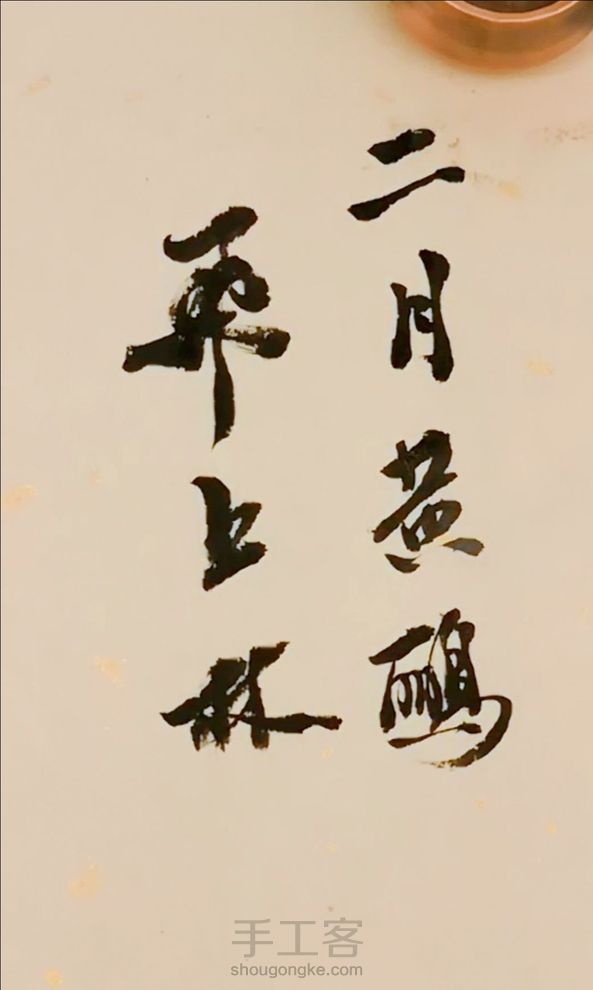 二月黄鹂
飛上林
手工客
shougongke.com